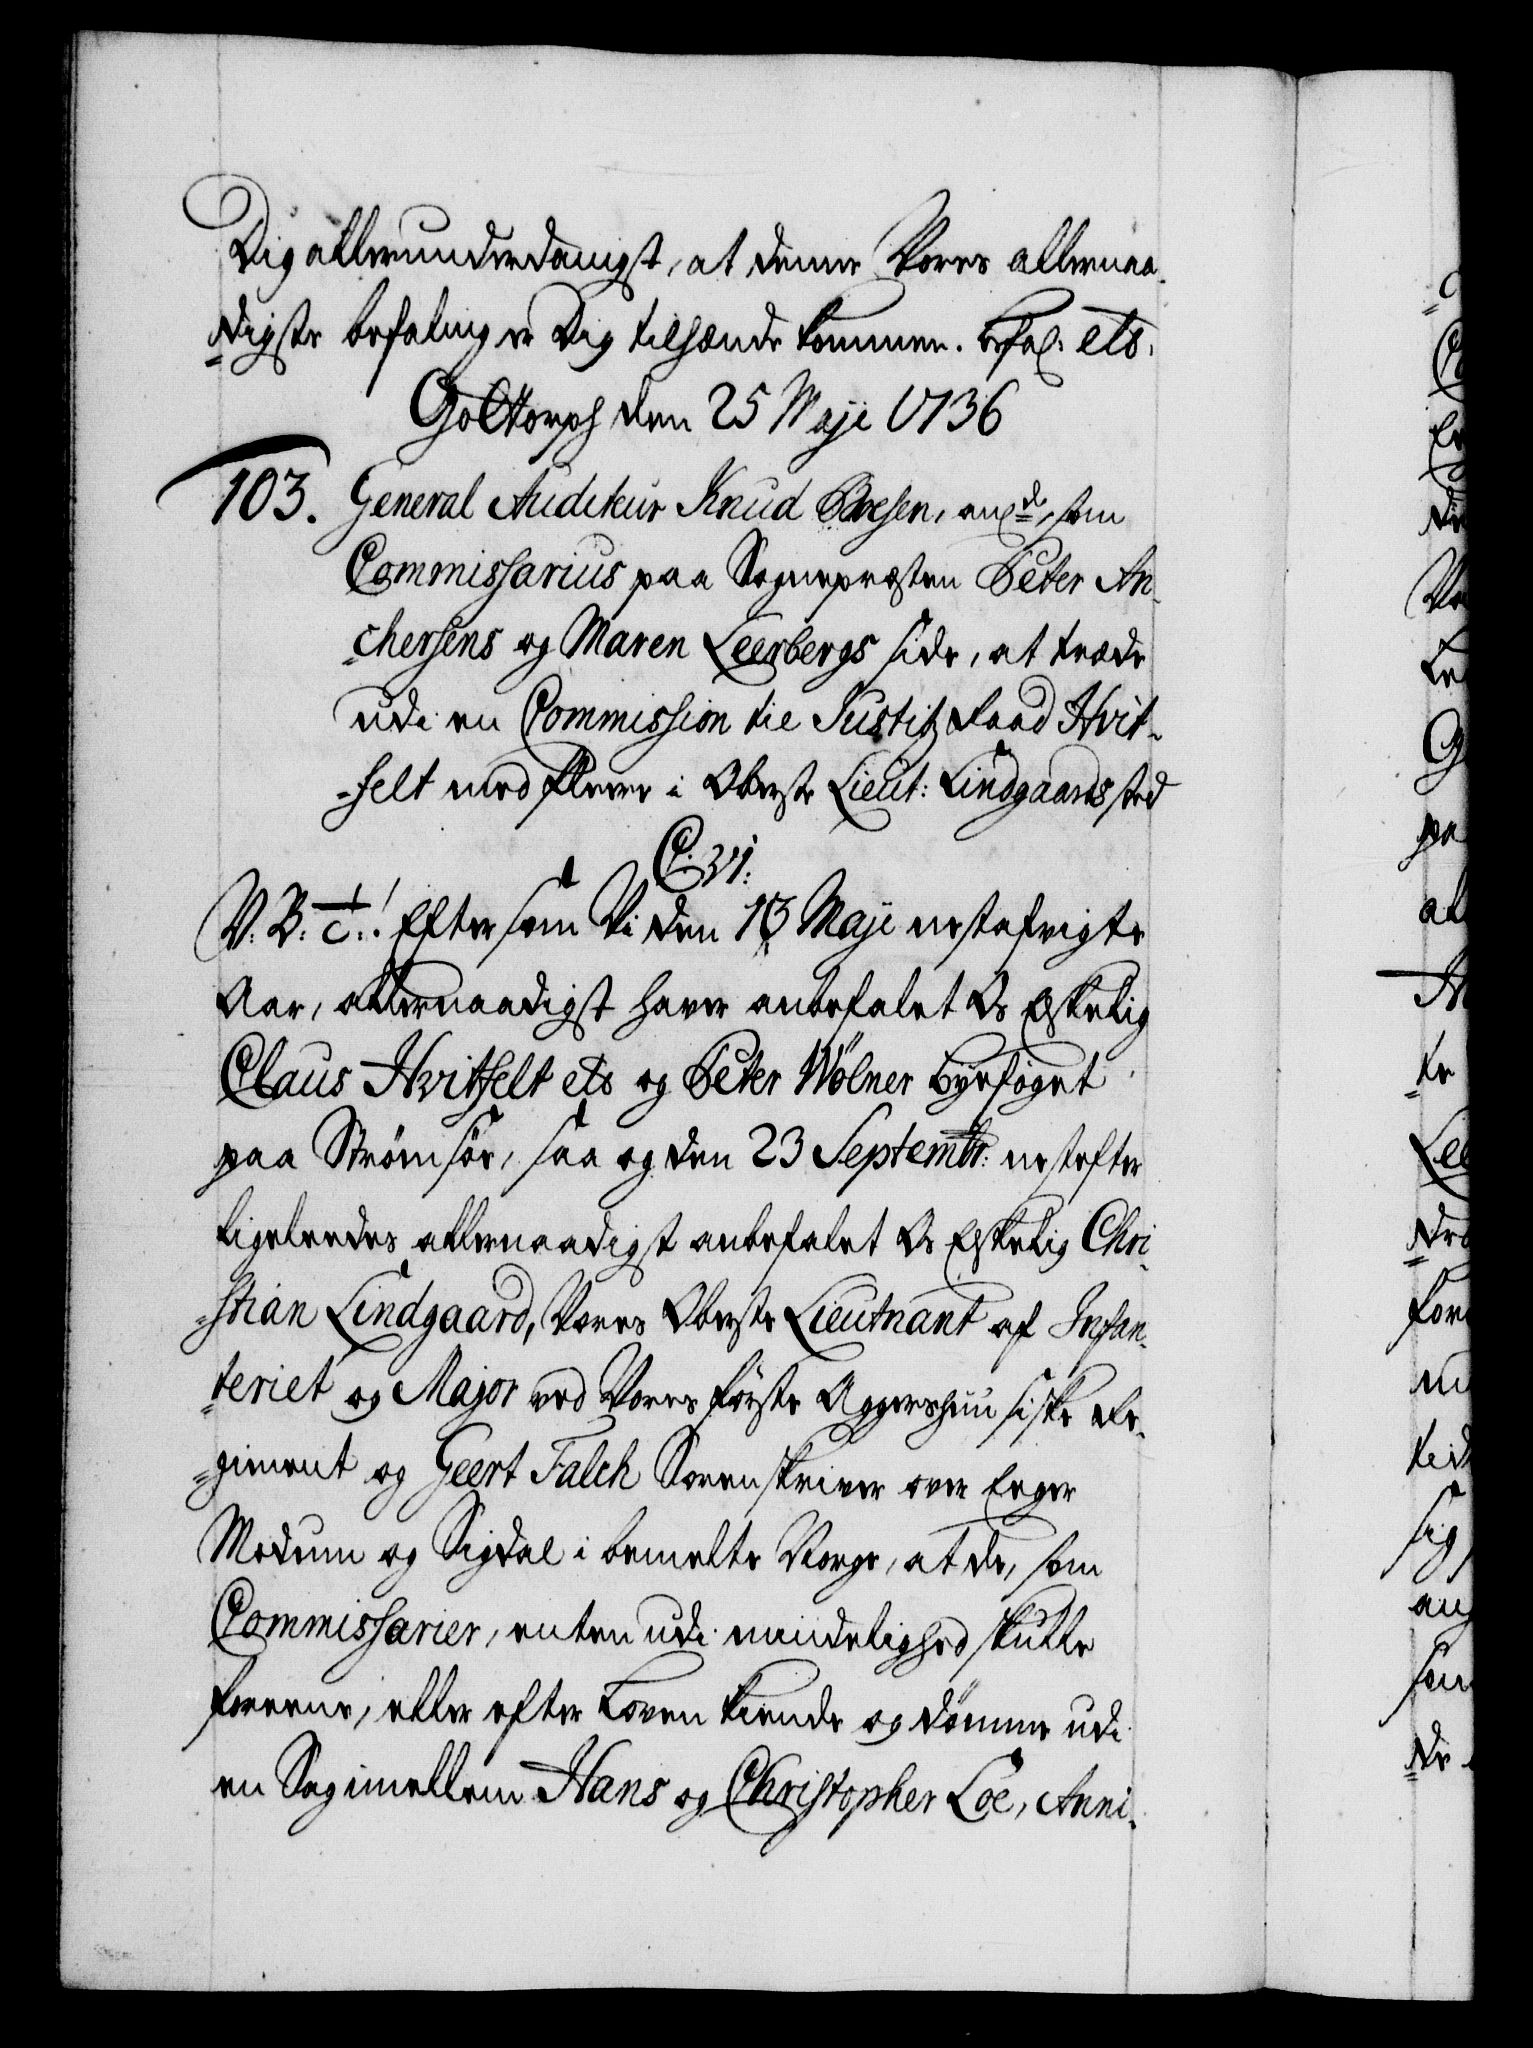 Dig allerunderdanigst, at denne Vores allernaa-
digste befaling er Dig tilhænde kommen. Befal: etc.
Gottorph den 25 Maji 1736
103. General Auditeur Knud Bresen, anl: som
Commissarius paa Sognepræsten Peter An-
chersens og Maren Leerbergs side, at træde
udi en Commission til Justitz Raad Hvit-
felt med fleere i Oberste Lieut: Lindgaards sted
C. VI:
V. B. c.! Eftersom Vi den 13 Maji nestafvigte
Aar, allernaadigst haver anbefalet Os Elskelig
Claus Hvitfelt etc og Peter Wölner Byefoget
paa Strömsöe, saa og den 23 Septembr: nestefter
ligeleedes allernaadigst anbefalet Os Elskelig Chri-
stian Lindgaard, Vores Oberste Lieutnant af Infan-
teriet og Major ved Vores förste Aggershuusiske Re-
giment og Geert Falch Sorenskriver over Eeger
Modum og Sigdal i bemelte Norge, at de, som
Commissarier, enten udi mindelighed skulle
foreene, eller efter Loven kiende og dömme udi
en Sag imellem Hans og Christopher Loe, Anni-